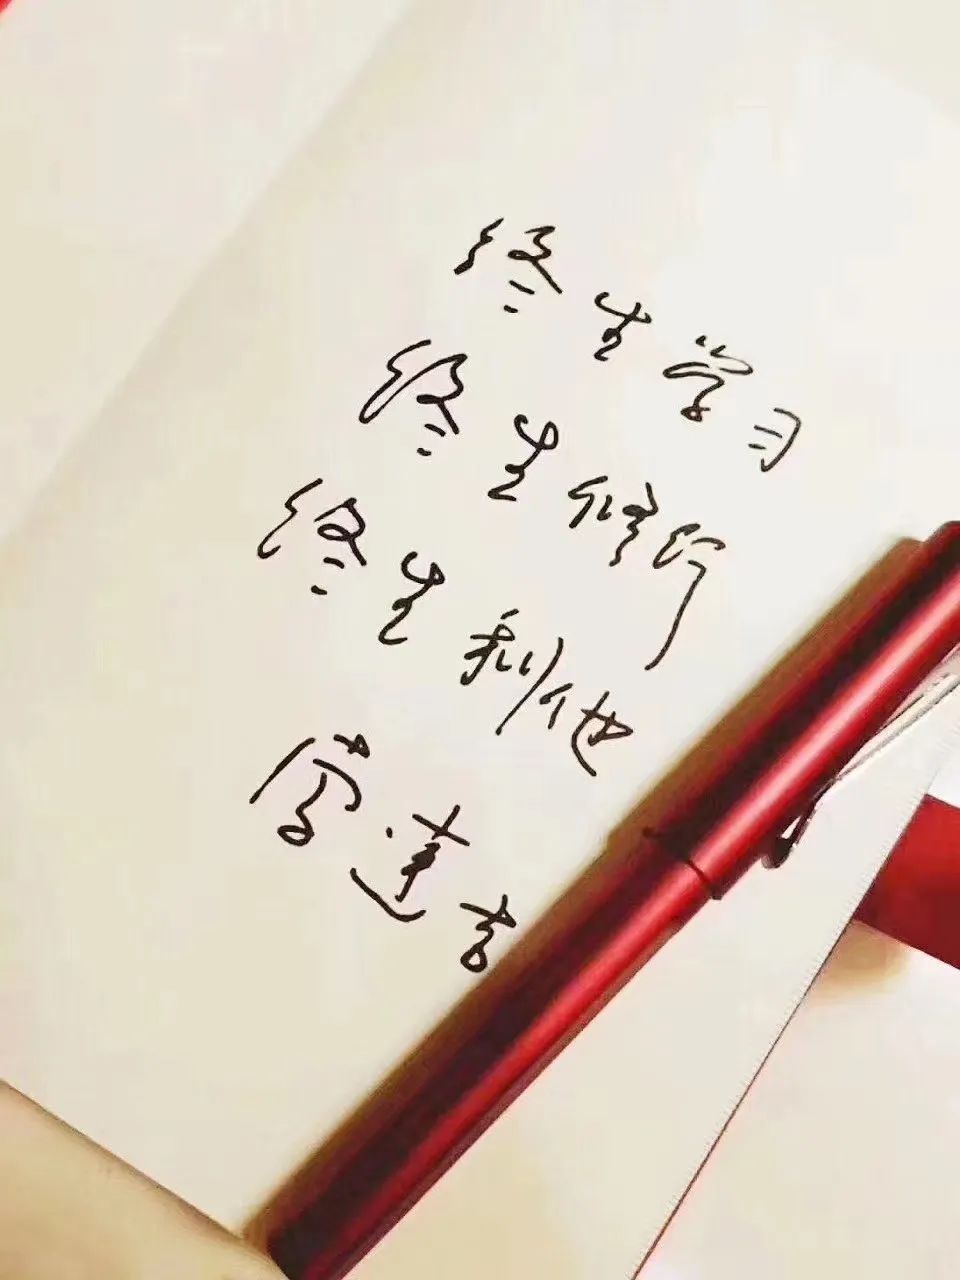 终生学习
终生修行
终生利他
常达吉